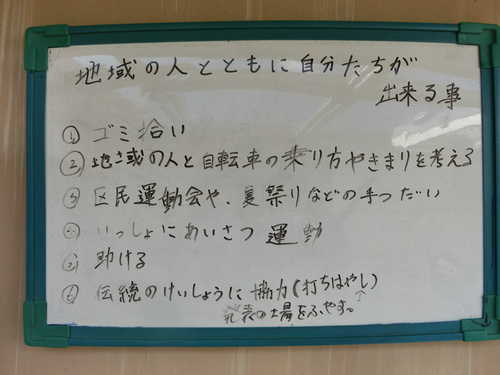 地域の人とともに自分たちが
出来る事
① ゴミ拾い
② 地域の人と自転車の乗り方やきまりを考える
③ 区民運動会や、夏祭りなどの手つだい
④ いっしょにあいさつ運動
⑤ 助ける
⑥ 伝統のけいしょうに協力(打ちばやし)
発表の場をふやす。